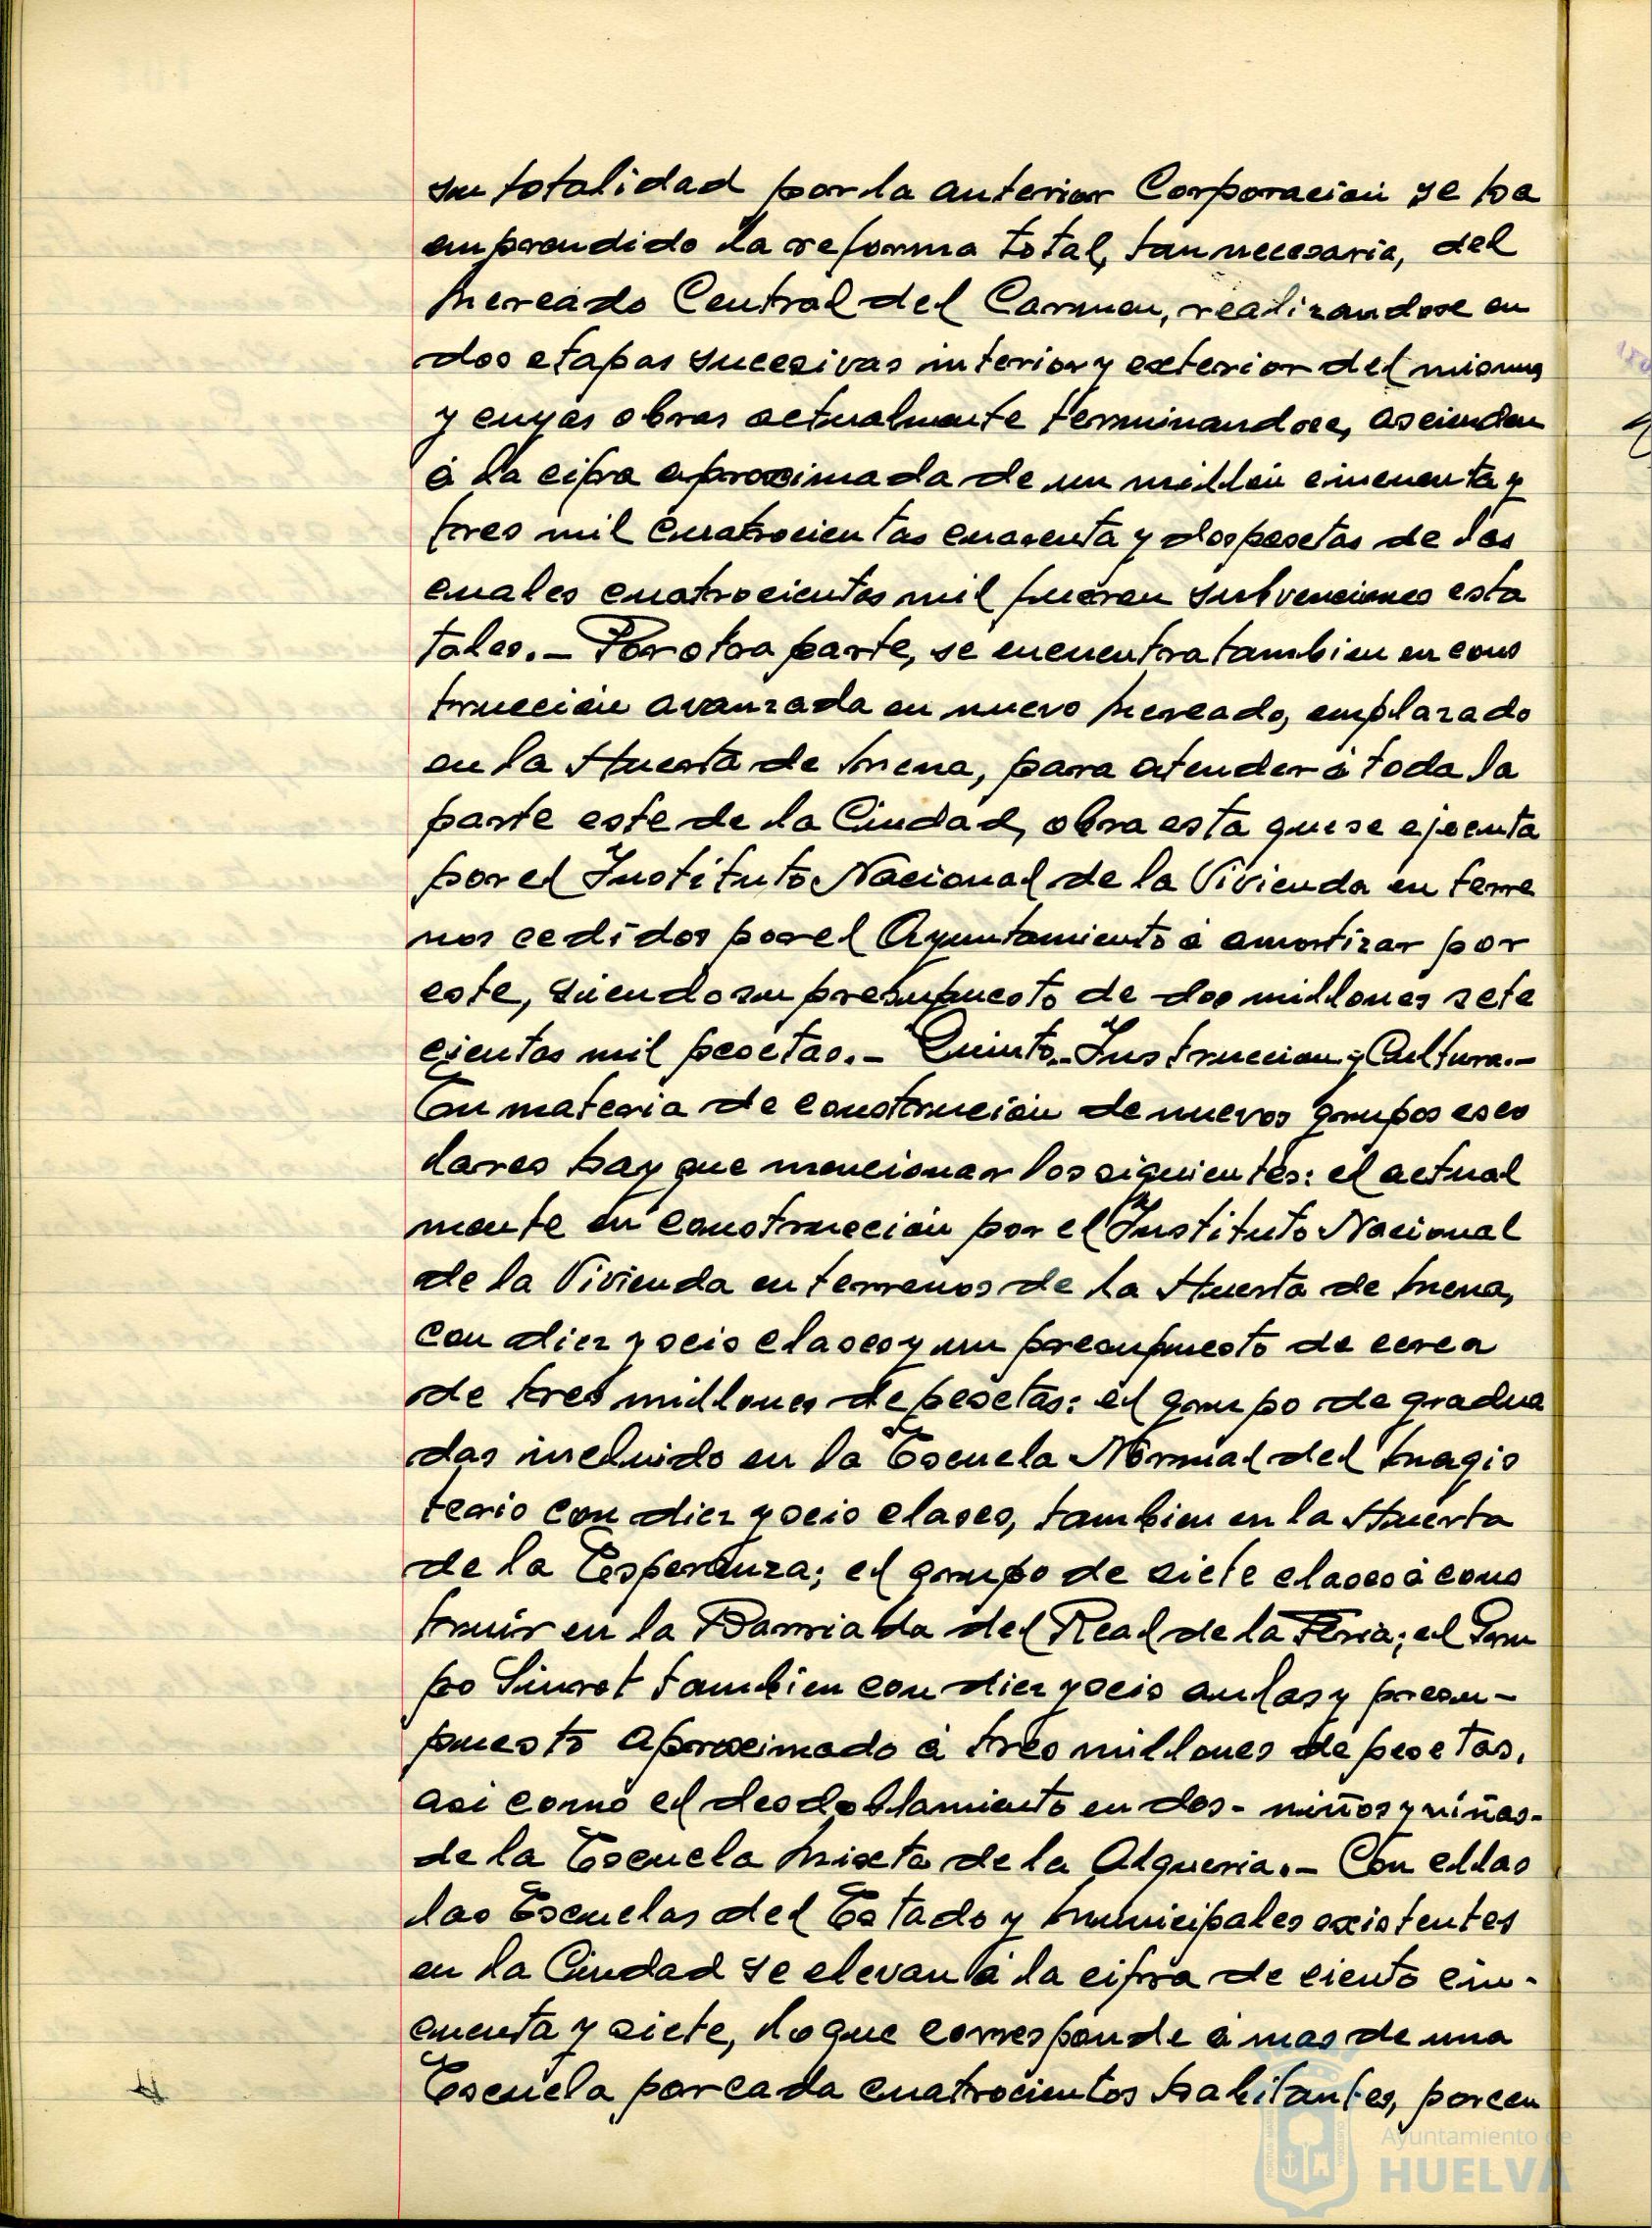 su totalidad por la anterior Corporación se ha
emprendido la reforma total, tan necesaria, del
Mercado Central del Carmen, realizandose en
dos etapas sucesivas interior y exterior del mismo
y cuyas obras actualmente terminandose, ascienden
á la cifra aproximada de un millón cincuenta y
tres mil cuatrocientas cuarenta y dos pesetas de las
cuales cuatrocientas mil fueron subvenciones esta
tales.- Por otra parte, se encuentra tambien en cons
trucción avanzada en nuevo Mercado, emplazado
en la Huerta de Mena, para atender á toda la
parte este de la Ciudad, obra esta que se ejecuta
por el Instituto Nacional de la Vivienda en terre
nos cedidos por el Ayuntamiento á amortizar por
este, siendo su presupuesto de dos millones sete
cientas mil pesetas.- Quinto.- Instruccion y Cultura.-
En materia de construción de nuevos grupos esco
lares hay que mencionar los siguientes: el actual
mente en construcción por el Instituto Nacional
de la Vivienda en terrenos de la Huerta de Mena,
con diez y seis clases y un presupuesto de cerca
de tres millones de pesetas: el grupo de gradua
das incluido en la Escuela Normal del Magis
terio con diez y seis clases, tambien en la Huerta
de la Esperanza; el grupo de siete clases á cons
truir en la Barriada del Real de la Feria; el Gru
po Siurot tambien con diez y seis aulas y presu-
puesto aproximado á tres millones de pesetas,
asi como el desdoblamiento en dos - niños y niñas-
de la Escuela Mixta de la Alqueria.- Con ellas
las Escuelas del Estado y Municipales existentes
en la Ciudad se elevan á la cifra de ciento cin-
cuenta y siete, lo que corresponde á mas de una
Escuela por cada cuatrocientos habitantes, porcen
Ayuntamiento de
HUELVA